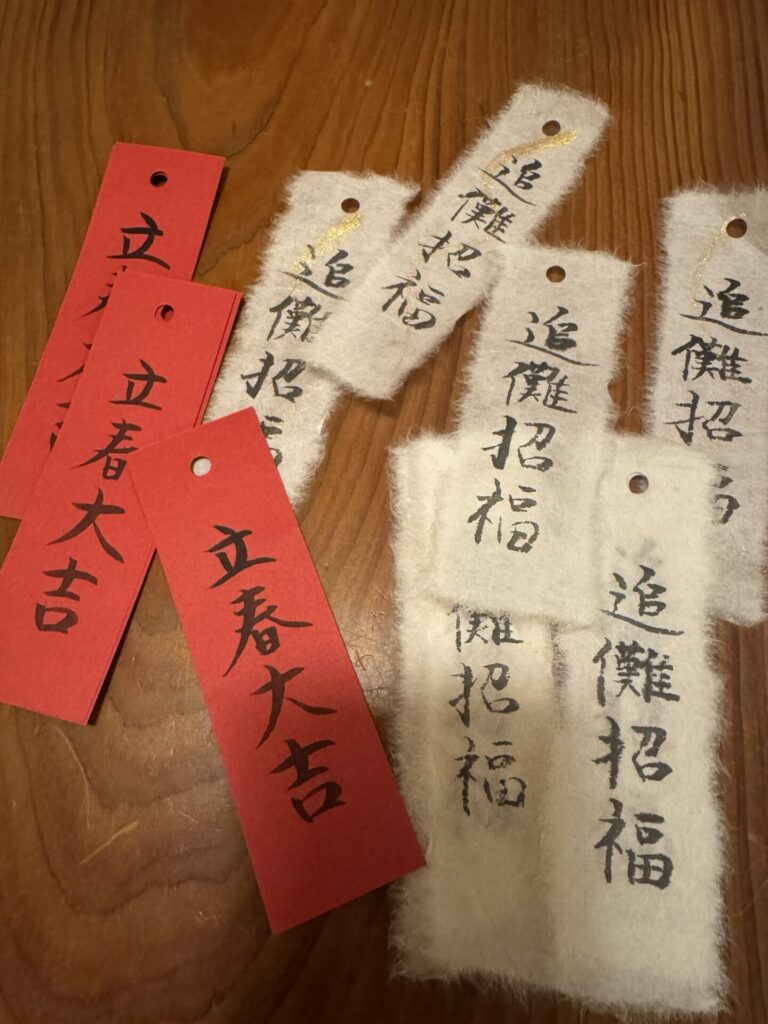 立春大吉
立春大吉
立春大吉
追儺招福
追儺招福
追儺招福
追儺招福
儺招福
追儺招福